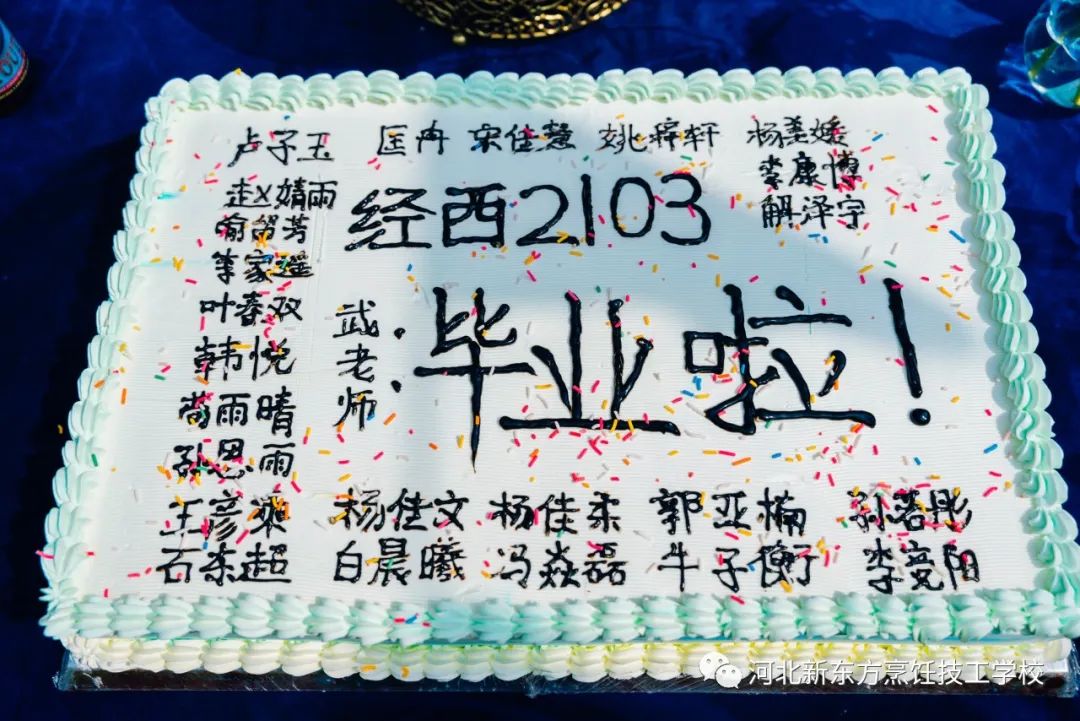 卢子玉 匡冉 宋佳慧 姚梓轩 杨美媛
赵婧雨 李康博
俞贸芳 解泽宇
经西2103
李家遥
叶春双
韩悦
武老师:
毕业啦!
苟雨晴
孙思雨
王彦爽 杨佳文 杨佳柔 郭亚楠 孙若彤
石东超 白晨曦 冯焱磊 牛子衡 李亮阳
河北新东方烹饪技工学校